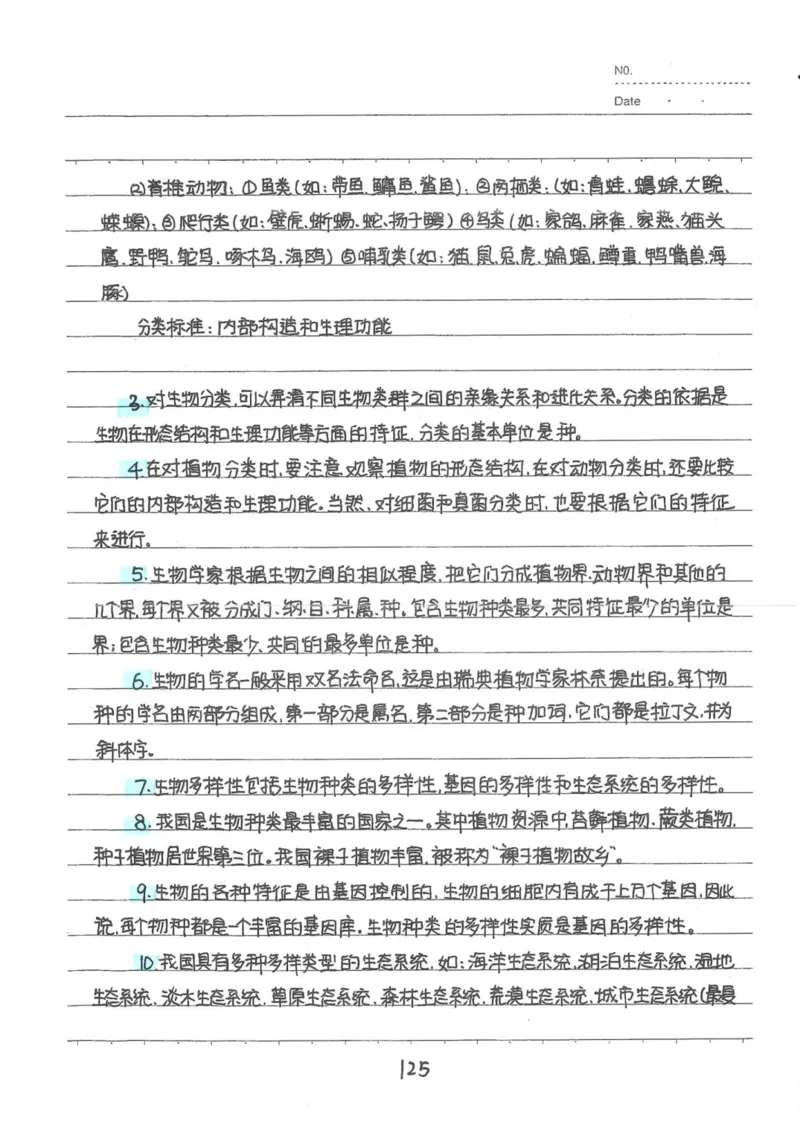 NO.
Date
(2)脊椎动物:①鱼类(如:带鱼.鳊鱼.鲨鱼);②两栖类:(如:青蛙、蟾蜍、大鲵、
蝾螈);③爬行类(如:壁虎.蜥蜴、蛇、扬子鳄)④鸟类(如:家鸽.麻雀.家燕、猫头
鹰.野鸭、鸵鸟.啄木鸟.海鸥)⑤哺乳类(如:猫.鼠.兔.虎、蝙蝠.鸭嘴兽.海
豚)
分类标准:内部构造和生理功能
3.对生物分类,可以弄清不同生物类群之间的亲缘关系和进化关系。分类的依据是
生物在形态结构和生理功能等方面的特征.分类的基本单位是种。
4.在对植物分类时,要注意观察植物的形态结构,在对动物分类时,还要比较
它们的内部构造和生理功能。当然、对细菌和真菌分类时,也要根据它们的特征
来进行。
5.生物学家根据生物之间的相似程度,把它们分成植物界.动物界和其他的
几个界,每个界又被分成门、纲.目.科.属.种。包含生物种类最多,共同特征最少的单位是
界;包含生物种类最少、共同的最多单位是种。
6.生物的学名一般采用双名法命名,这是由瑞典植物学家林奈提出的。每个物
种的学名由两部分组成,第一部分是属名,第二部分是种加词.它们都是拉丁文.并为
斜体字。
7.生物多样性包括生物种类的多样性,基因的多样性和生态系统的多样性。
8.我国是生物种类最丰富的国家之一。其中植物资源中,苔藓植物.蕨类植物,
种子植物居世界第三位。我国裸子植物丰富,被称为“裸子植物故乡”。
9.生物的各种特征是由基因控制的,生物的细胞内有成千上万个基因,因此
说,每个物种都是一个丰富的基因库.生物种类的多样性实质是基因的多样性。
10.我国具有多种多样类型的生态系统,如:海洋生态系统.湖泊生态系统.湿地
生态系统.淡水生态系统.草原生态系统、森林生态系统.荒漠生态系统.城市生态系统(最
125